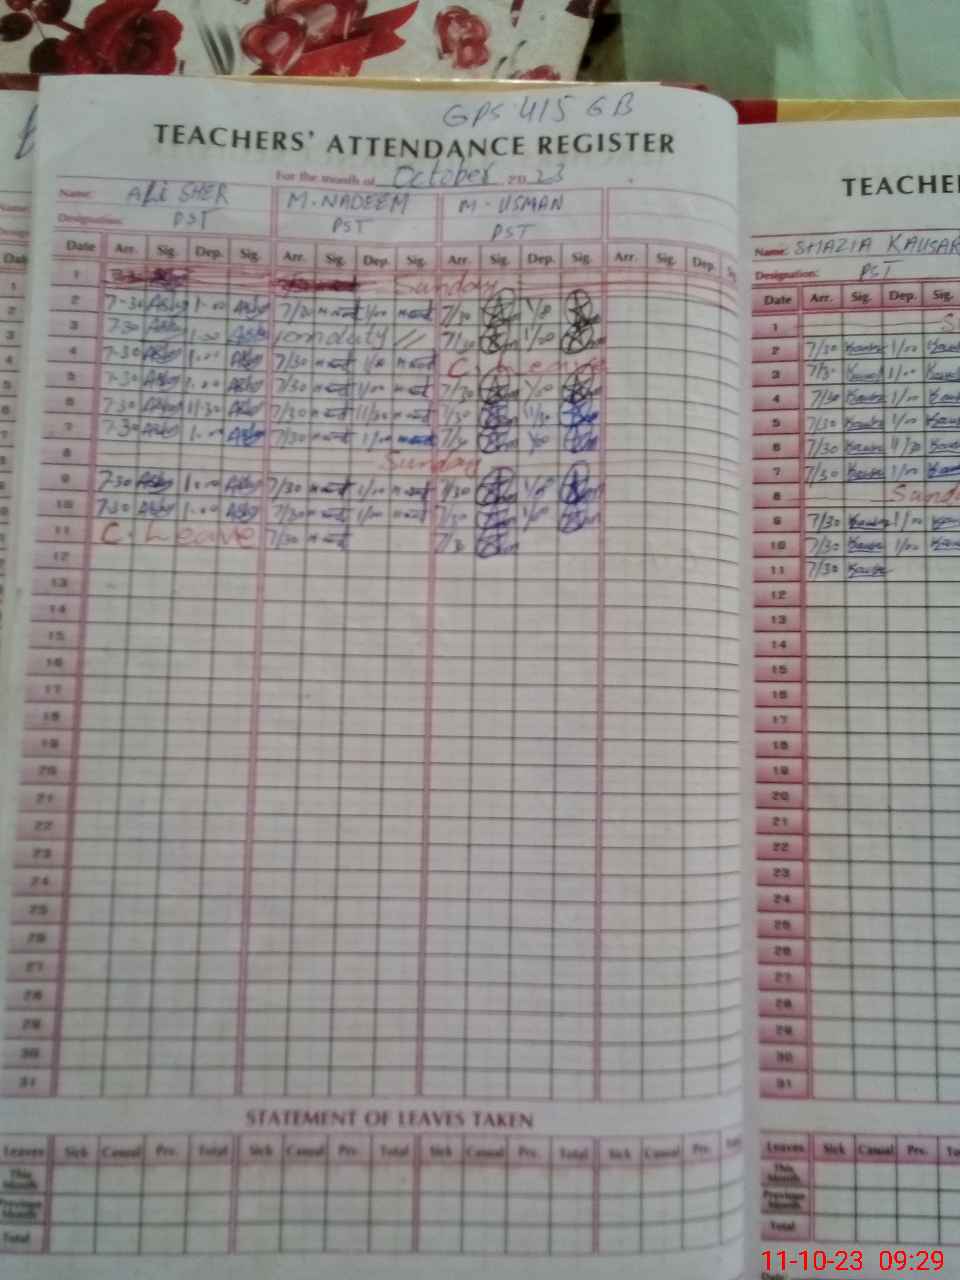 GPS 415 GB
TEACHERS' ATTENDANCE REGISTER
For the month of October 2023
Name: ALI SHER M. NADEEM M. USMAN
Designation: PST PST PST
Date Arr. Sig. Dep. Sig. Arr. Sig. Dep. Sig. Arr. Sig. Dep. Sig. Arr. Sig. Dep. Sig.
1 Sunday
2 7-30 1-00 7/30 1/00 7/30
3 7-30 1-00 on duty 7/30 1/00
4 7-30 1-00 7/30 1/00 C. Leave
5 7-30 1-00 7/30 1/00 7/30 1/00
6 7-30 11-30 7/30 11/30 7/30 11/30
7 7-30 1-00 7/30 1/00 7/30 1/00
8 Sunday
9 7-30 1-00 7/30 1/00 7/30 1/00
10 7-30 1-00 7/30 1/00 7/30 1/00
11 C. Leave 7/30 7/30
12
13
14
15
16
17
18
19
20
21
22
23
24
25
26
27
28
29
30
31
STATEMENT OF LEAVES TAKEN
Leaves Sick Casual Prv. Total Sick Casual Prv. Total Sick Casual Prv. Total Sick Casual Prv. Total
This Month
Previous Month
Total
TEACHE
Name: SHAZIA KAUSAR
Designation: PST
Date Arr. Sig. Dep. Sig.
1 S
2 7/30 Kausar 1/00
3 7/30 Kausar 1/00
4 7/30 Kausar 1/00
5 7/30 Kausar 1/00
6 7/30 Kausar 11/30
7 7/30 Kausar 1/00
8 Sund
9 7/30 Kausar 1/00
10 7/30 Kausar 1/00
11 7/30 Kausar
12
13
14
15
16
17
18
19
20
21
22
23
24
25
26
27
28
29
30
31
Leaves Sick Casual Prv. To
This Month
Previous Month
Total
11-10-23 09:29